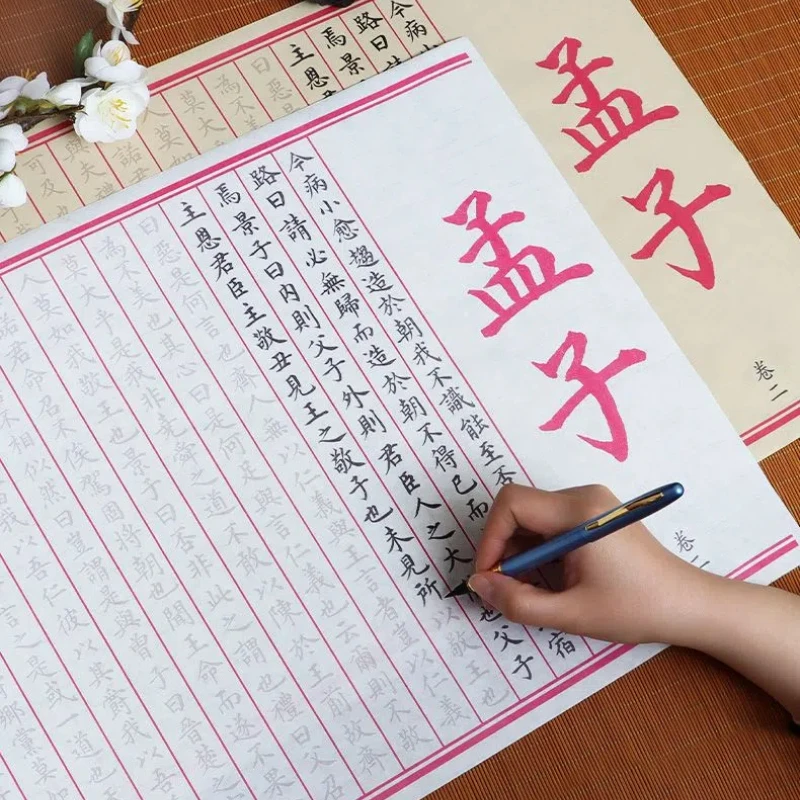 孟子
卷二
今病小
路曰請
焉景
主恩君
曰惡是
為不美
莫大
人莫如
諾君
與夫禮
可及也
孟子
卷二
今病小愈趨造於朝我不識能至否
路曰請必無歸而造於朝不得已而宿
焉景子曰內則父子外則君臣人之大也父子
主恩君臣主敬丑見王之敬子也未見所以敬王也
曰惡是何言也齊人無以仁義與王言者豈以仁義
為不美也其心曰是何足與言仁義也云爾則不敬
莫大乎是我非堯舜之道不敢以陳於王前故齊
人莫如我敬王也景子曰否非此之謂也禮曰父召
諾君命召不俟駕固將朝也聞王命而遂不果
不相似然曰豈謂是與曾子曰晉楚之
我以吾仁彼以其爵我以吾
言之是或一道也
鄉黨莫如